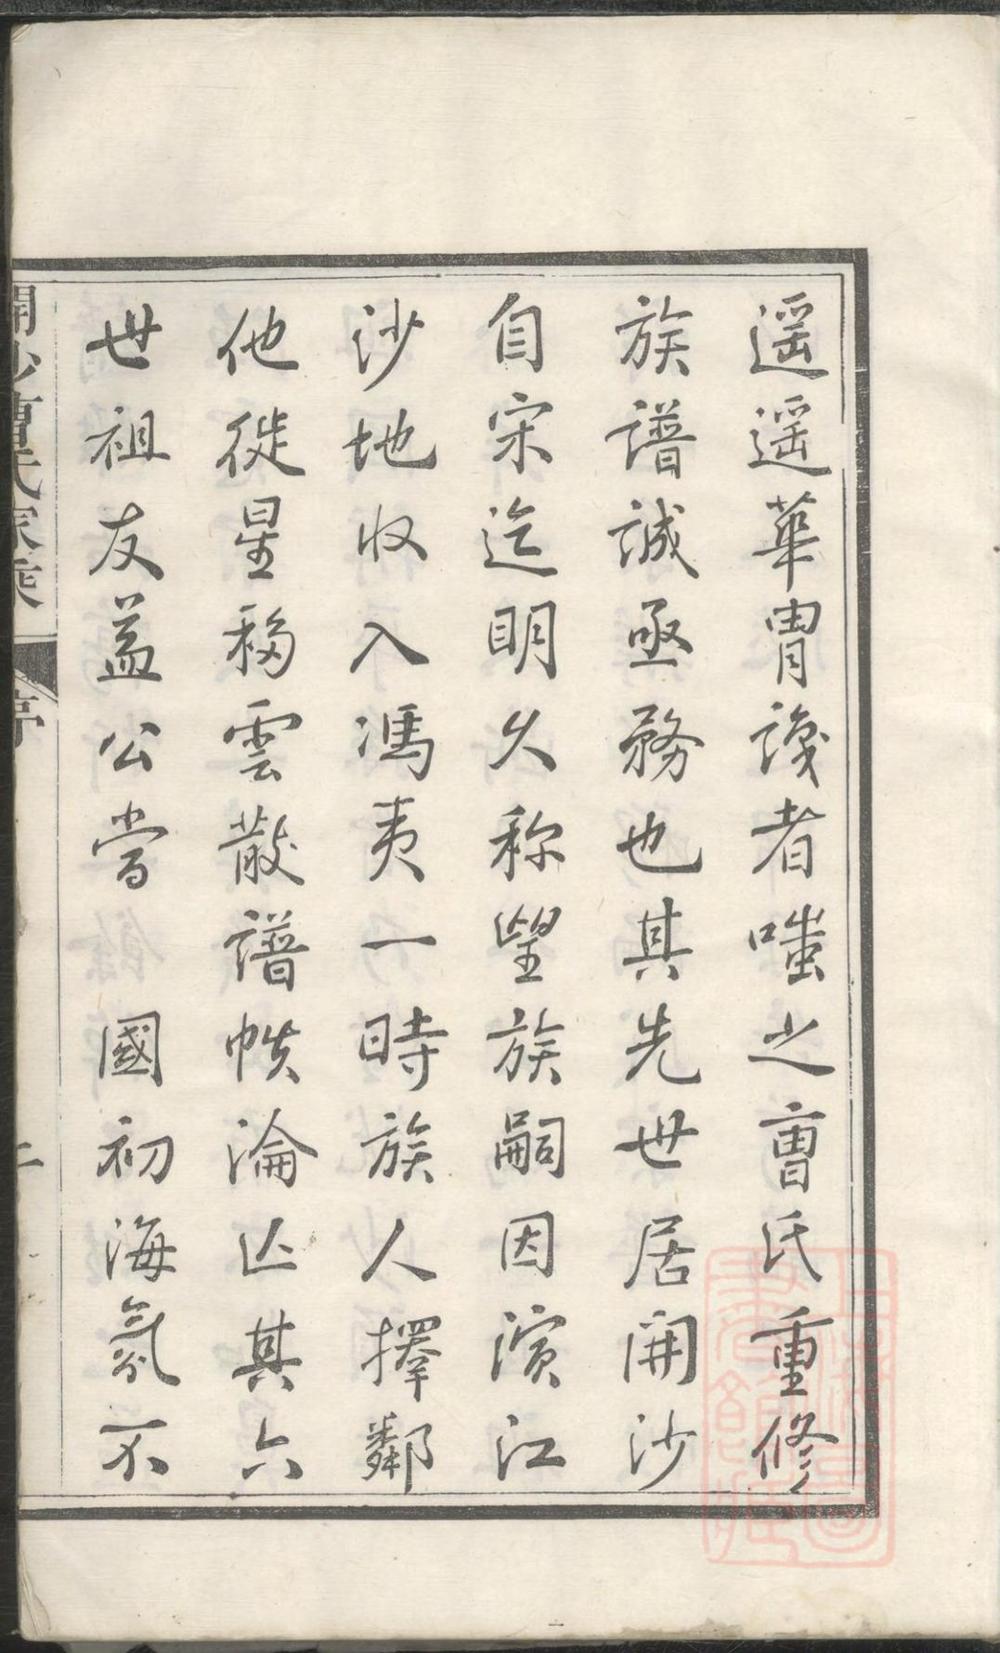 遥遥華胄識者嗤之曹氏重修
族譜誠亟務也其先世居開沙
自宋迄明久称望族嗣因濱江
沙地收入馮夷一時族人擇鄰
他徙星移雲散譜帙淪亡其六
世祖友益公當 國初海氛不
開沙曹氏家乘
序